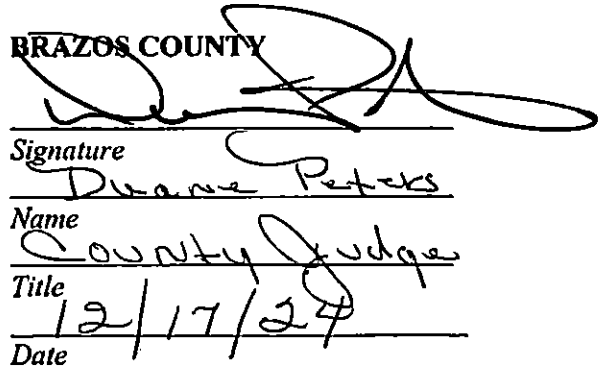 BRAZOS COUNTY
Signature
Duane Peters
Name
County Judge
Title
12/17/24
Date